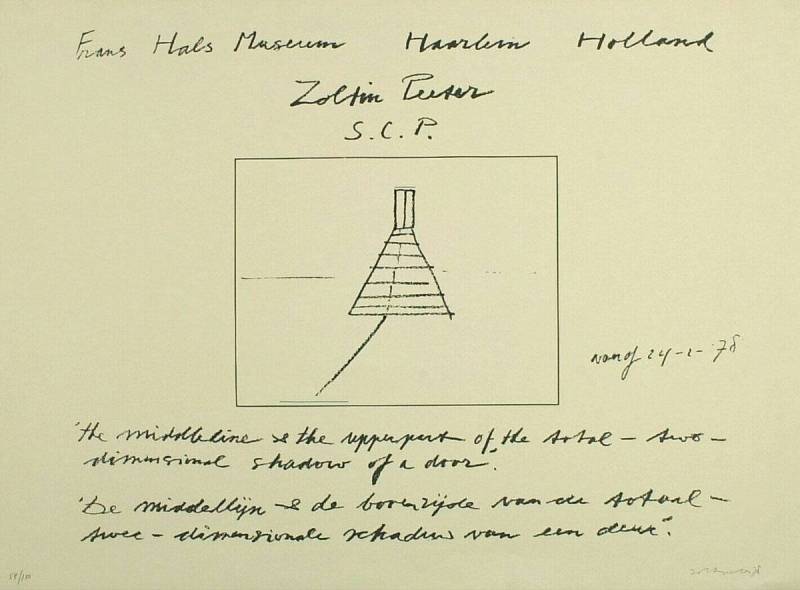 Frans Hals Museum Haarlem Holland
Zoltin Peeter
S.C.P.
vanaf 24-2-'78
'the middleline & the upperpart of the total - two -
dimensional shadow of a door'.
'De middellijn & de bovenzijde van de totaal -
twee - dimensionale schaduw van een deur'.